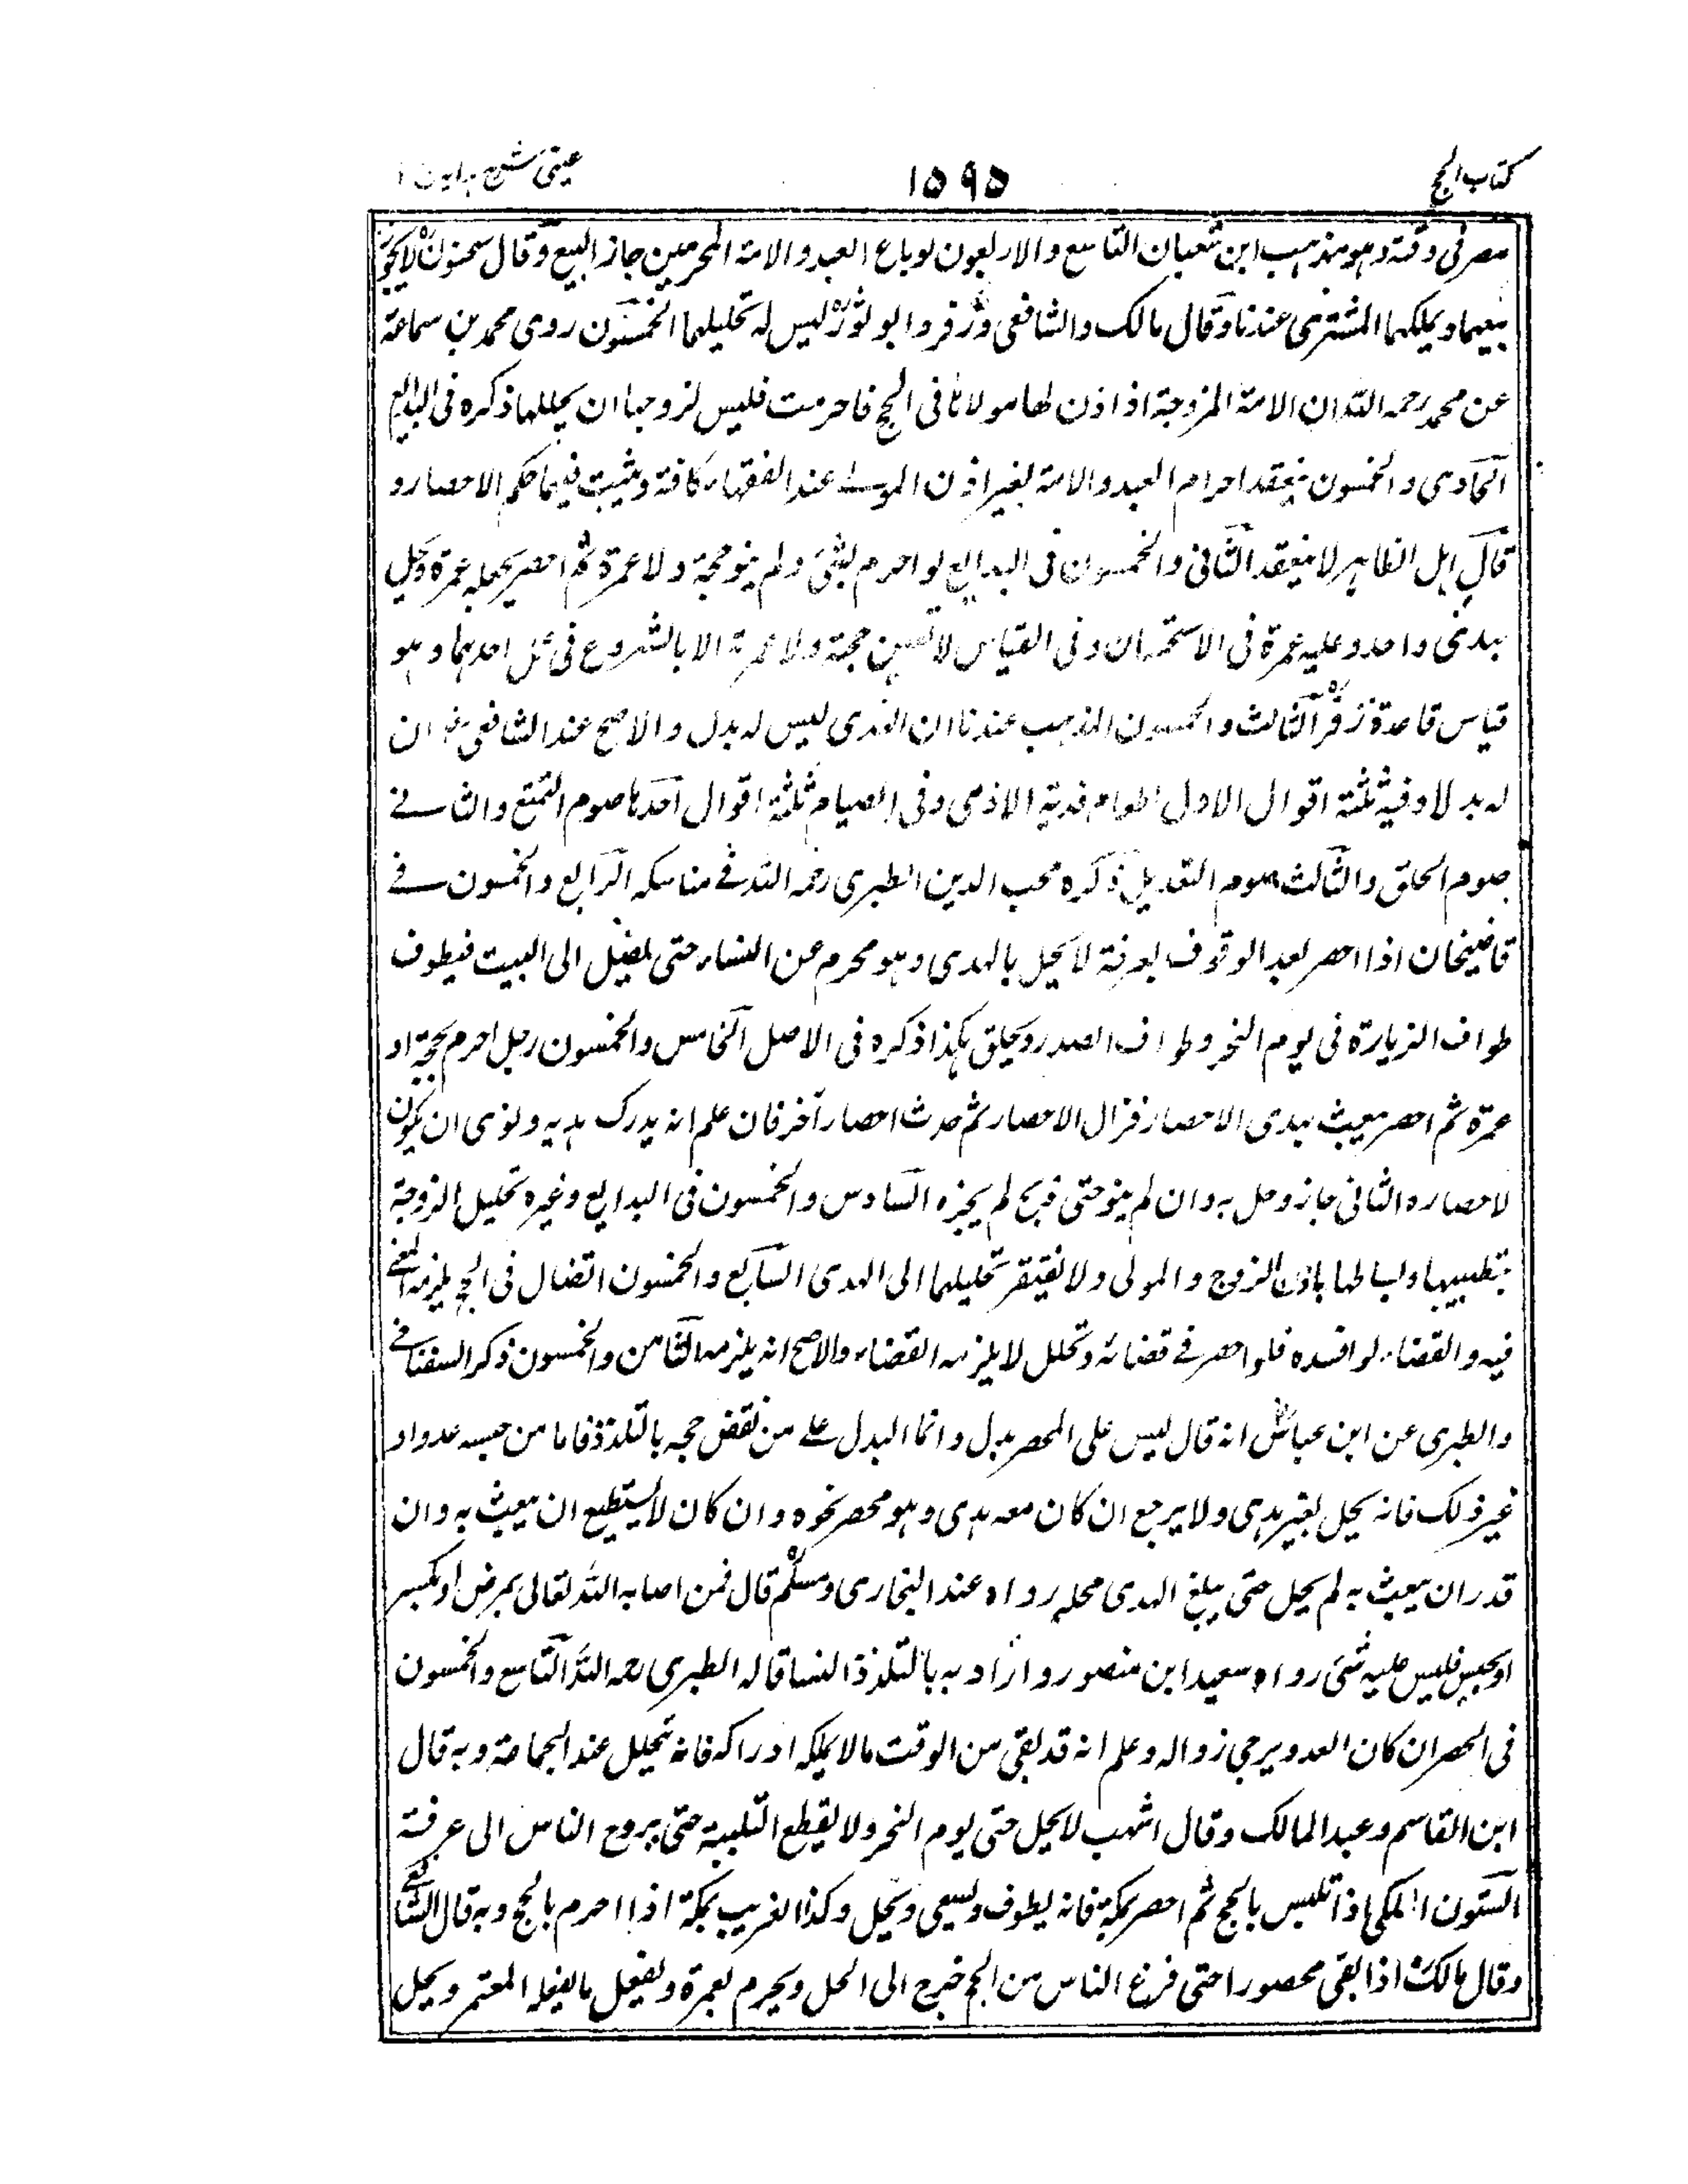 كتاب الحج ١٥٩٥ عينى شرح هداية
مصر فى وقته وهو مذهب ابن شعبان التاسع والاربعون لو باع العبد والامة المحرمين جاز البيع وقال سحنون لا يجوز
بيعهما ويملكهما المشترى عندنا وقال مالك والشافعى وزفر وابو ثور ليس له تحليلهما الخمسون روى محمد بن سماعة
عن محمد رحمه الله ان الامة المزوجة اذا اذن لها مولاها فى الحج فاحرمت فليس لزوجها ان يحللها ذكره فى البدايع
الحادى والخمسون ينعقد احرام العبد والامة لغير اذن المولے عند الفقهاء كافة ويثبت فيهما حكم الاحصار و
قال اهل الظاهر لا ينعقد الثانى والخمسون فى البدايع لو احرم لشئ ولم ينو حجة ولا عمرة ثم احصر يجعله عمرة ويحل
بهدى واحد وعليه عمرة فى الاستحسان وفى القياس لا تتعين حجة ولا عمرة الا بالشروع فى عمل احدهما وهو
قياس قاعدة زفر الثالث والخمسون المذهب عندنا ان الهدى ليس له بدل والاصح عند الشافعى ان
له بدلا وفيه ثلثة اقوال الاول اطعام فدية الاذى وفى الصيام ثلثة اقوال احدها صوم التمتع والثانے
صوم الحلق والثالث صوم التعديل ذكره محب الدين الطبرى رحمه الله فے مناسكه الرابع والخمسون فے
قاضيخان اذا احصر بعد الوقوف بعرفة لا يحل بالهدى وهو محرم عن النساء حتى يصل الى البيت فيطوف
طواف الزيارة فى يوم النحر وطواف الصدر ويحلق هكذا ذكره فى الاصل الخامس والخمسون رجل احرم بحجة او
عمرة ثم احصر يبعث بهدى الاحصار فزال الاحصار ثم حدث احصار آخر فان علم انه يدرك هديه ونوى ان يكون
لاحصاره الثانى جاز وحل به وان لم ينو حتى ذبح لم يجزه السادس والخمسون فى البدايع وغيره تحليل الزوجة
بتطييبها ولباسها باذن الزوج والمولى ولا يفتقر تحليلهما الى الهدى السابع والخمسون الضال فى الحج يلزمه المضے
فيه والقضاء لو افسده فلو احصر فے قضائه وتحلل لا يلزمه القضاء والاصح انه يلزمه الثامن والخمسون ذكر السغناقے
والطبرى عن ابن عباس انه قال ليس على المحصر بدل وانما البدل علے من نقض حجه بالتلذذ فاما من حبسه عدو او
غير ذلك فانه يحل بغير هدى ولا يرجع ان كان معه هدى وهو محصر نحره وان كان لا يستطيع ان يبعث به وان
قدر ان يبعث به لم يحل حتى يبلغ الهدى محله رواه عند البخارى ومسلم قال فمن اصابه الله تعالى بمرض او كسر
او حبس فليس عليه شئ رواه سعيد ابن منصور واراد به بالتلذذ النسا قاله الطبرى رحمه الله التاسع والخمسون
فى الحصر ان كان العدو يرجى زواله وعلم انه قد بقى من الوقت ما لا يملكه ادراكه فانه يتحلل عند الجماعة وبه قال
ابن القاسم وعبد المالك وقال اشهب لا يحل حتى يوم النحر ولا يقطع التلبية حتى يروح الناس الى عرفة
الستون المكى اذا تلبس بالحج ثم احصر بمكة فانه يطوف ويسعى ويحل وكذا الغريب بمكة اذا احرم بالحج وبه قال الشافعے
وقال مالك اذا بقى محصورا حتى فرغ الناس من الحج خرج الى الحل ويحرم بعمرة ويفعل ما يفعله المعتمر ويحل